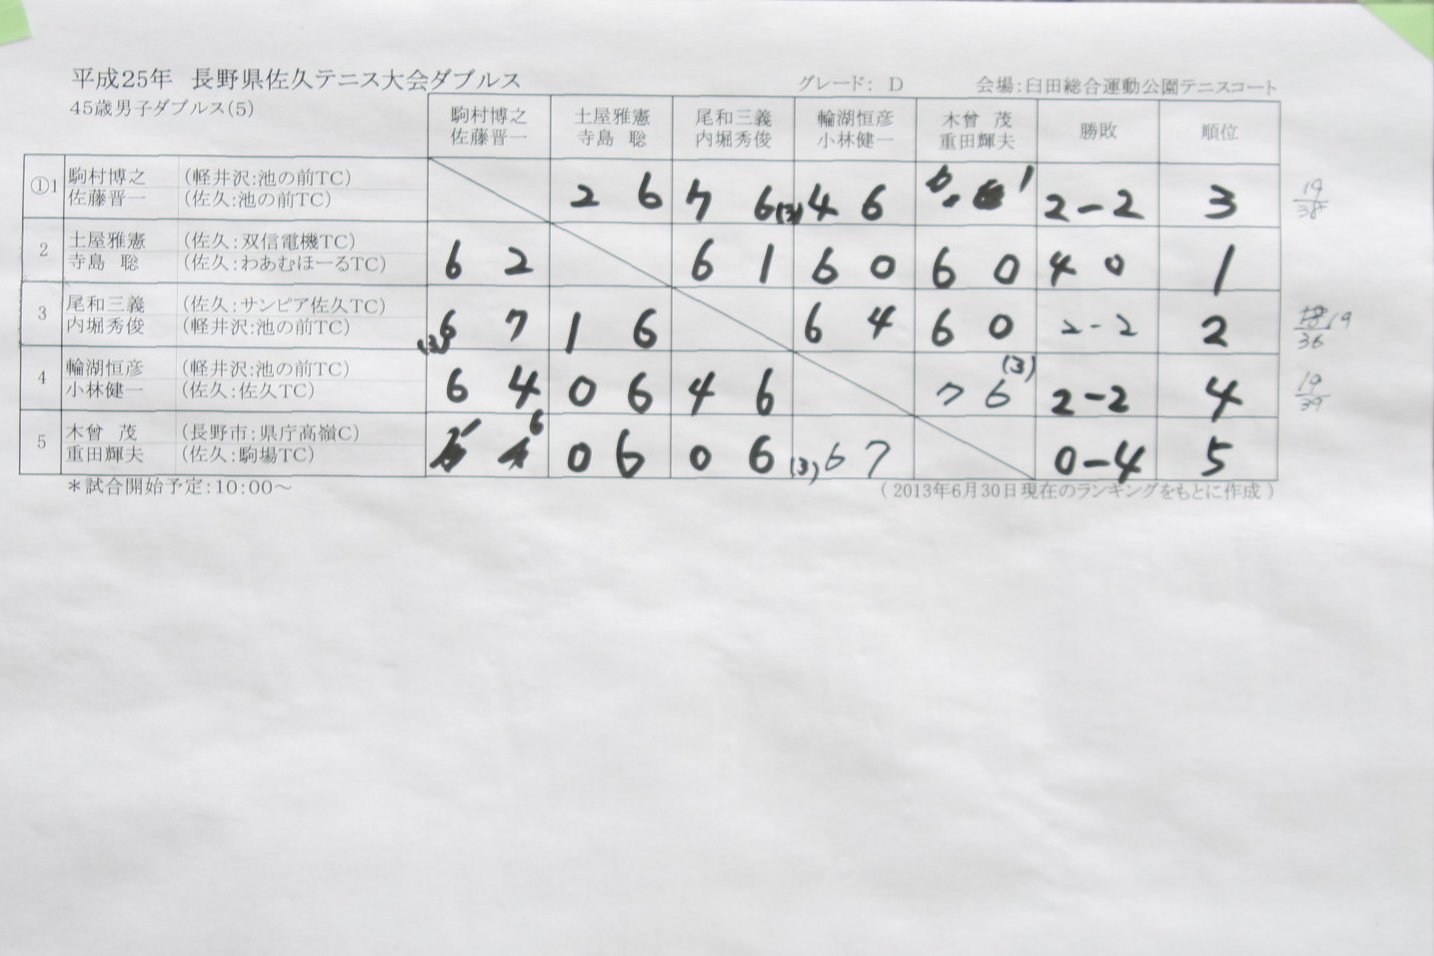 平成25年 長野県佐久テニス大会ダブルス グレード: D 会場:臼田総合運動公園テニスコート
45歳男子ダブルス(5)
駒村博之 土屋雅憲 尾和三義 輪湖恒彦 木曾 茂 勝敗 順位
佐藤晋一 寺島 聡 内堀秀俊 小林健一 重田輝夫
①1 駒村博之 (軽井沢:池の前TC) 2 6 7 6(3) 4 6 6 1 2-2 3 19/38
佐藤晋一 (佐久:池の前TC)
2 土屋雅憲 (佐久:双信電機TC) 6 2 6 1 6 0 6 0 4 0 1
寺島 聡 (佐久:わあむほーるTC)
3 尾和三義 (佐久:サンピア佐久TC) (3)6 7 1 6 6 4 6 0 2-2 2 19/36
内堀秀俊 (軽井沢:池の前TC)
4 輪湖恒彦 (軽井沢:池の前TC) 6 4 0 6 4 6 7 6(3) 2-2 4 19/39
小林健一 (佐久:佐久TC)
5 木曾 茂 (長野市:県庁高嶺C) 1 6 0 6 0 6 (3)6 7 0-4 5
重田輝夫 (佐久:駒場TC)
*試合開始予定:10:00～ (2013年6月30日現在のランキングをもとに作成)